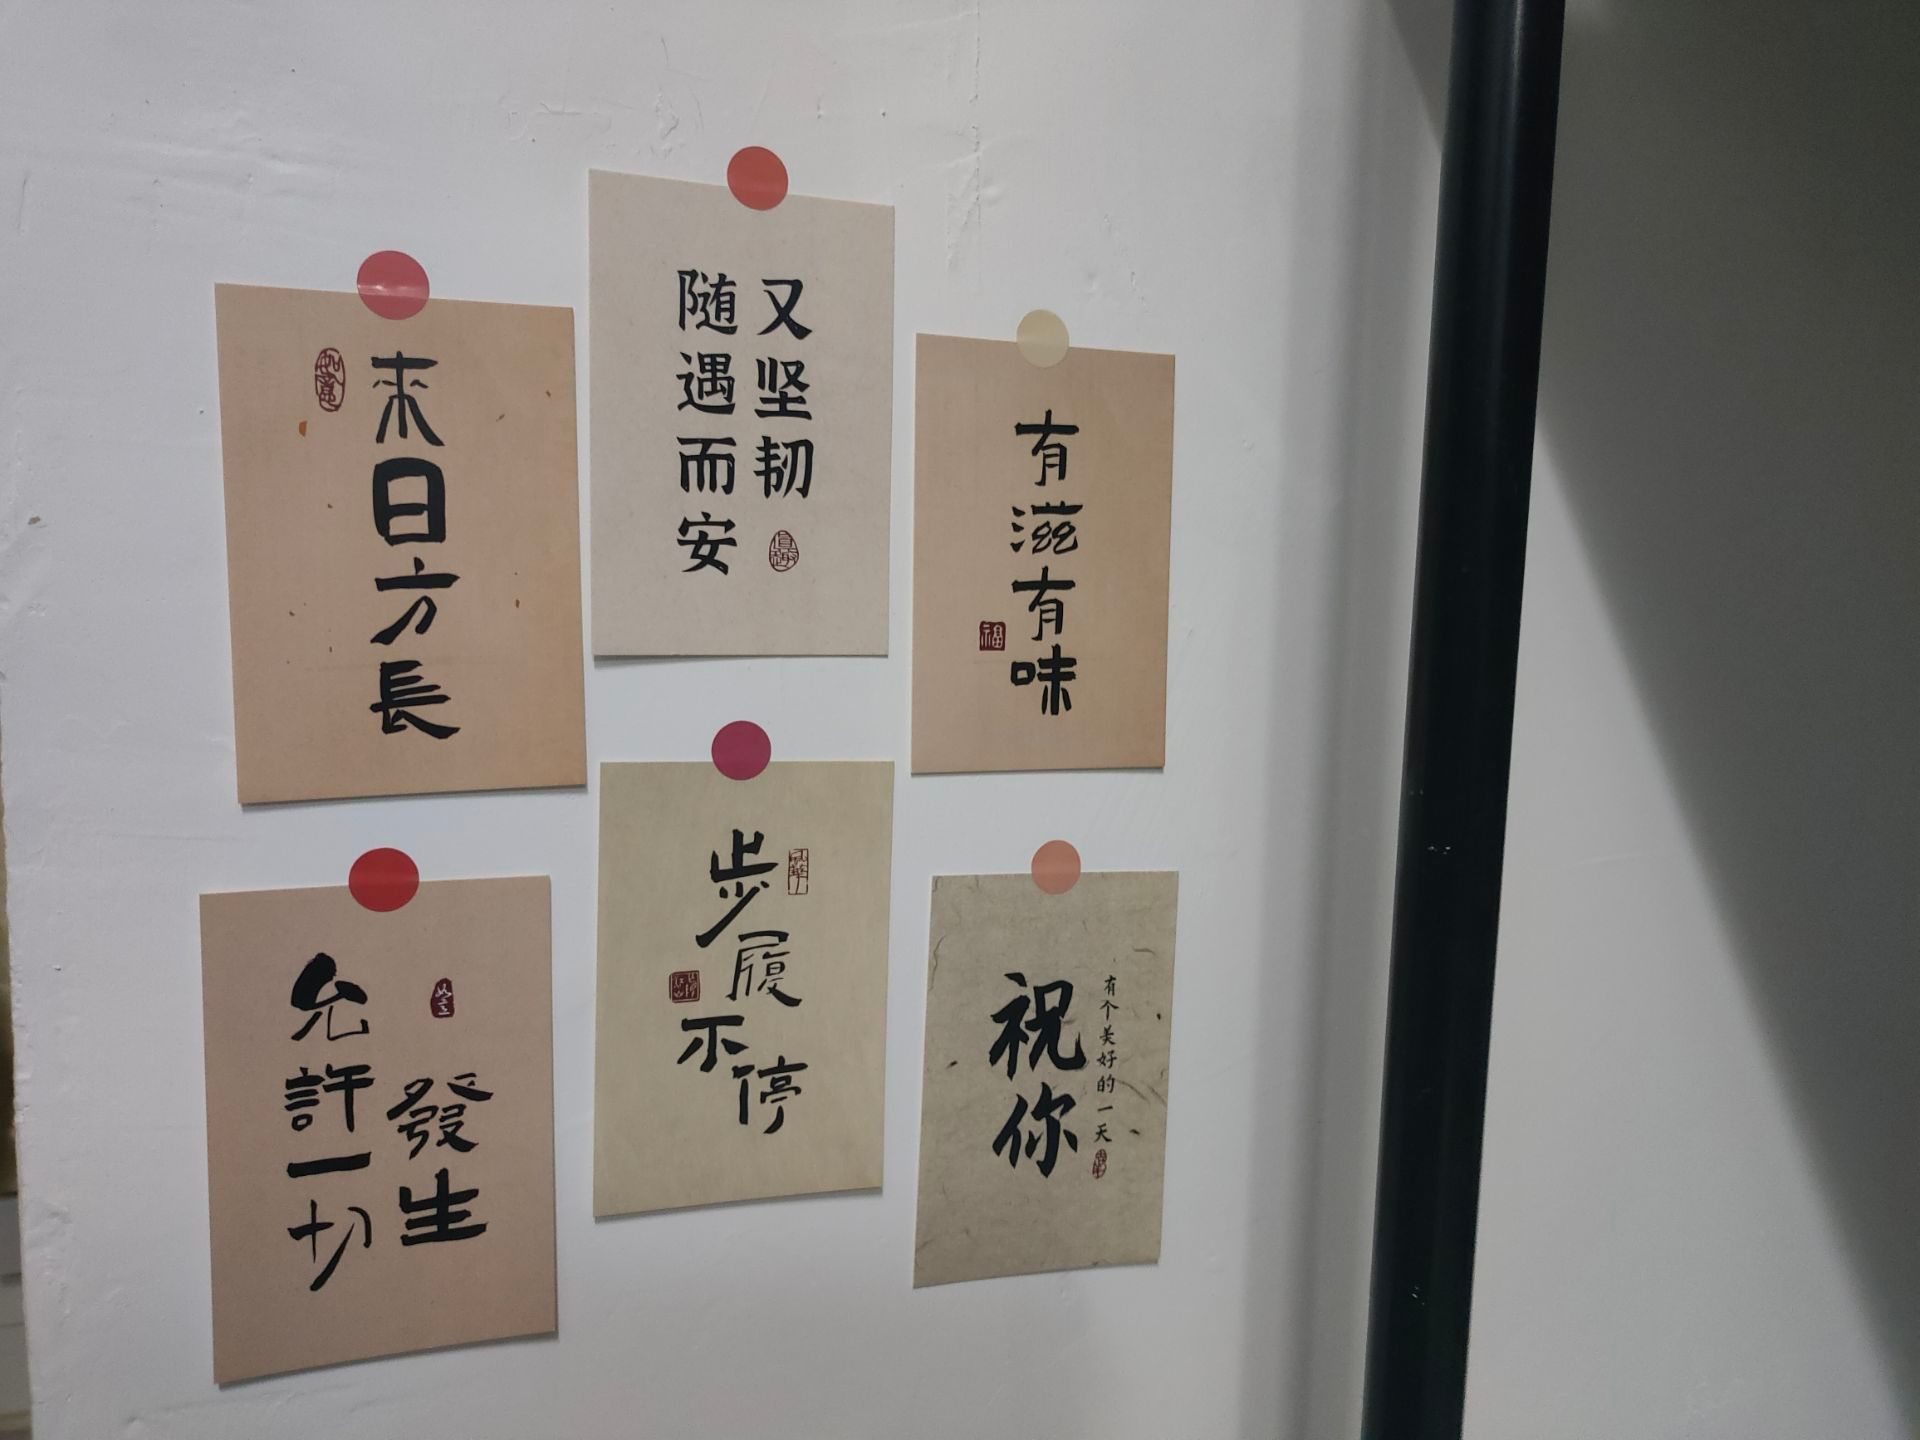 来日方長
如意
随遇而安
又坚韧
真趣
有滋有味
福
允許一切
發生
如意
步履
不停
祝你
有个美好的一天